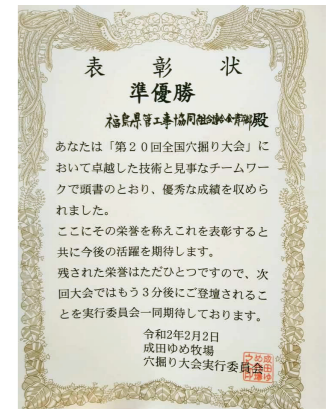 表彰状
準優勝
福島県管工事協同組合連合会青年部殿
あなたは「第20回全国穴掘り大会」に
おいて卓越した技術と見事なチームワー
クで頭書のとおり、優秀な成績を収めら
れました。
ここにその栄誉を称えこれを表彰すると
共に今後の活躍を期待します。
残された栄誉はただひとつですので、次
回大会ではもう3分後にご登壇されるこ
とを実行委員会一同期待しております。
令和2年2月2日
成田ゆめ牧場
穴掘り大会実行委員会